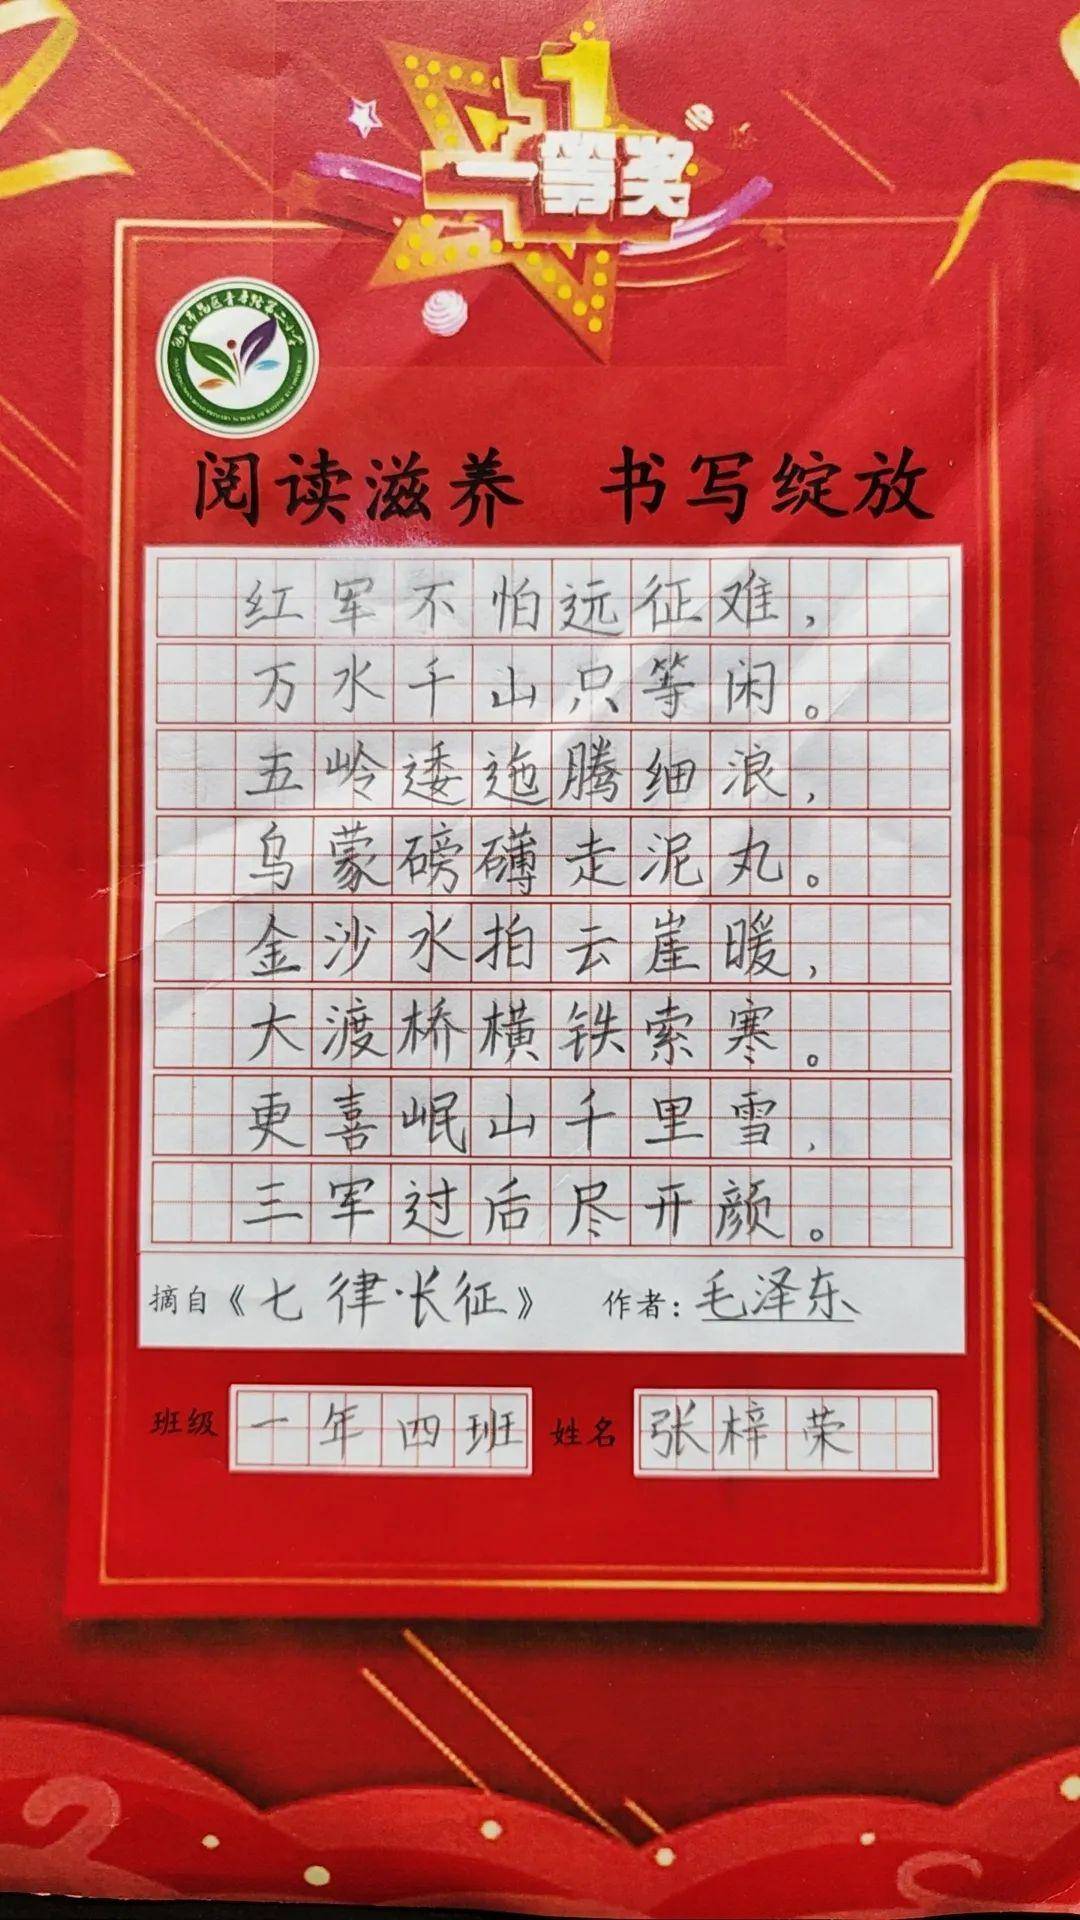 1
一等奖
阅读滋养 书写绽放
红军不怕远征难，
万水千山只等闲。
五岭逶迤腾细浪，
乌蒙磅礴走泥丸。
金沙水拍云崖暖，
大渡桥横铁索寒。
更喜岷山千里雪，
三军过后尽开颜。
摘自《七律·长征》 作者：毛泽东
班级 一年四班 姓名 张梓荣